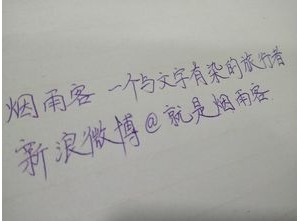 烟雨客 一个与文字有染的旅行者
新浪微博@就是烟雨客